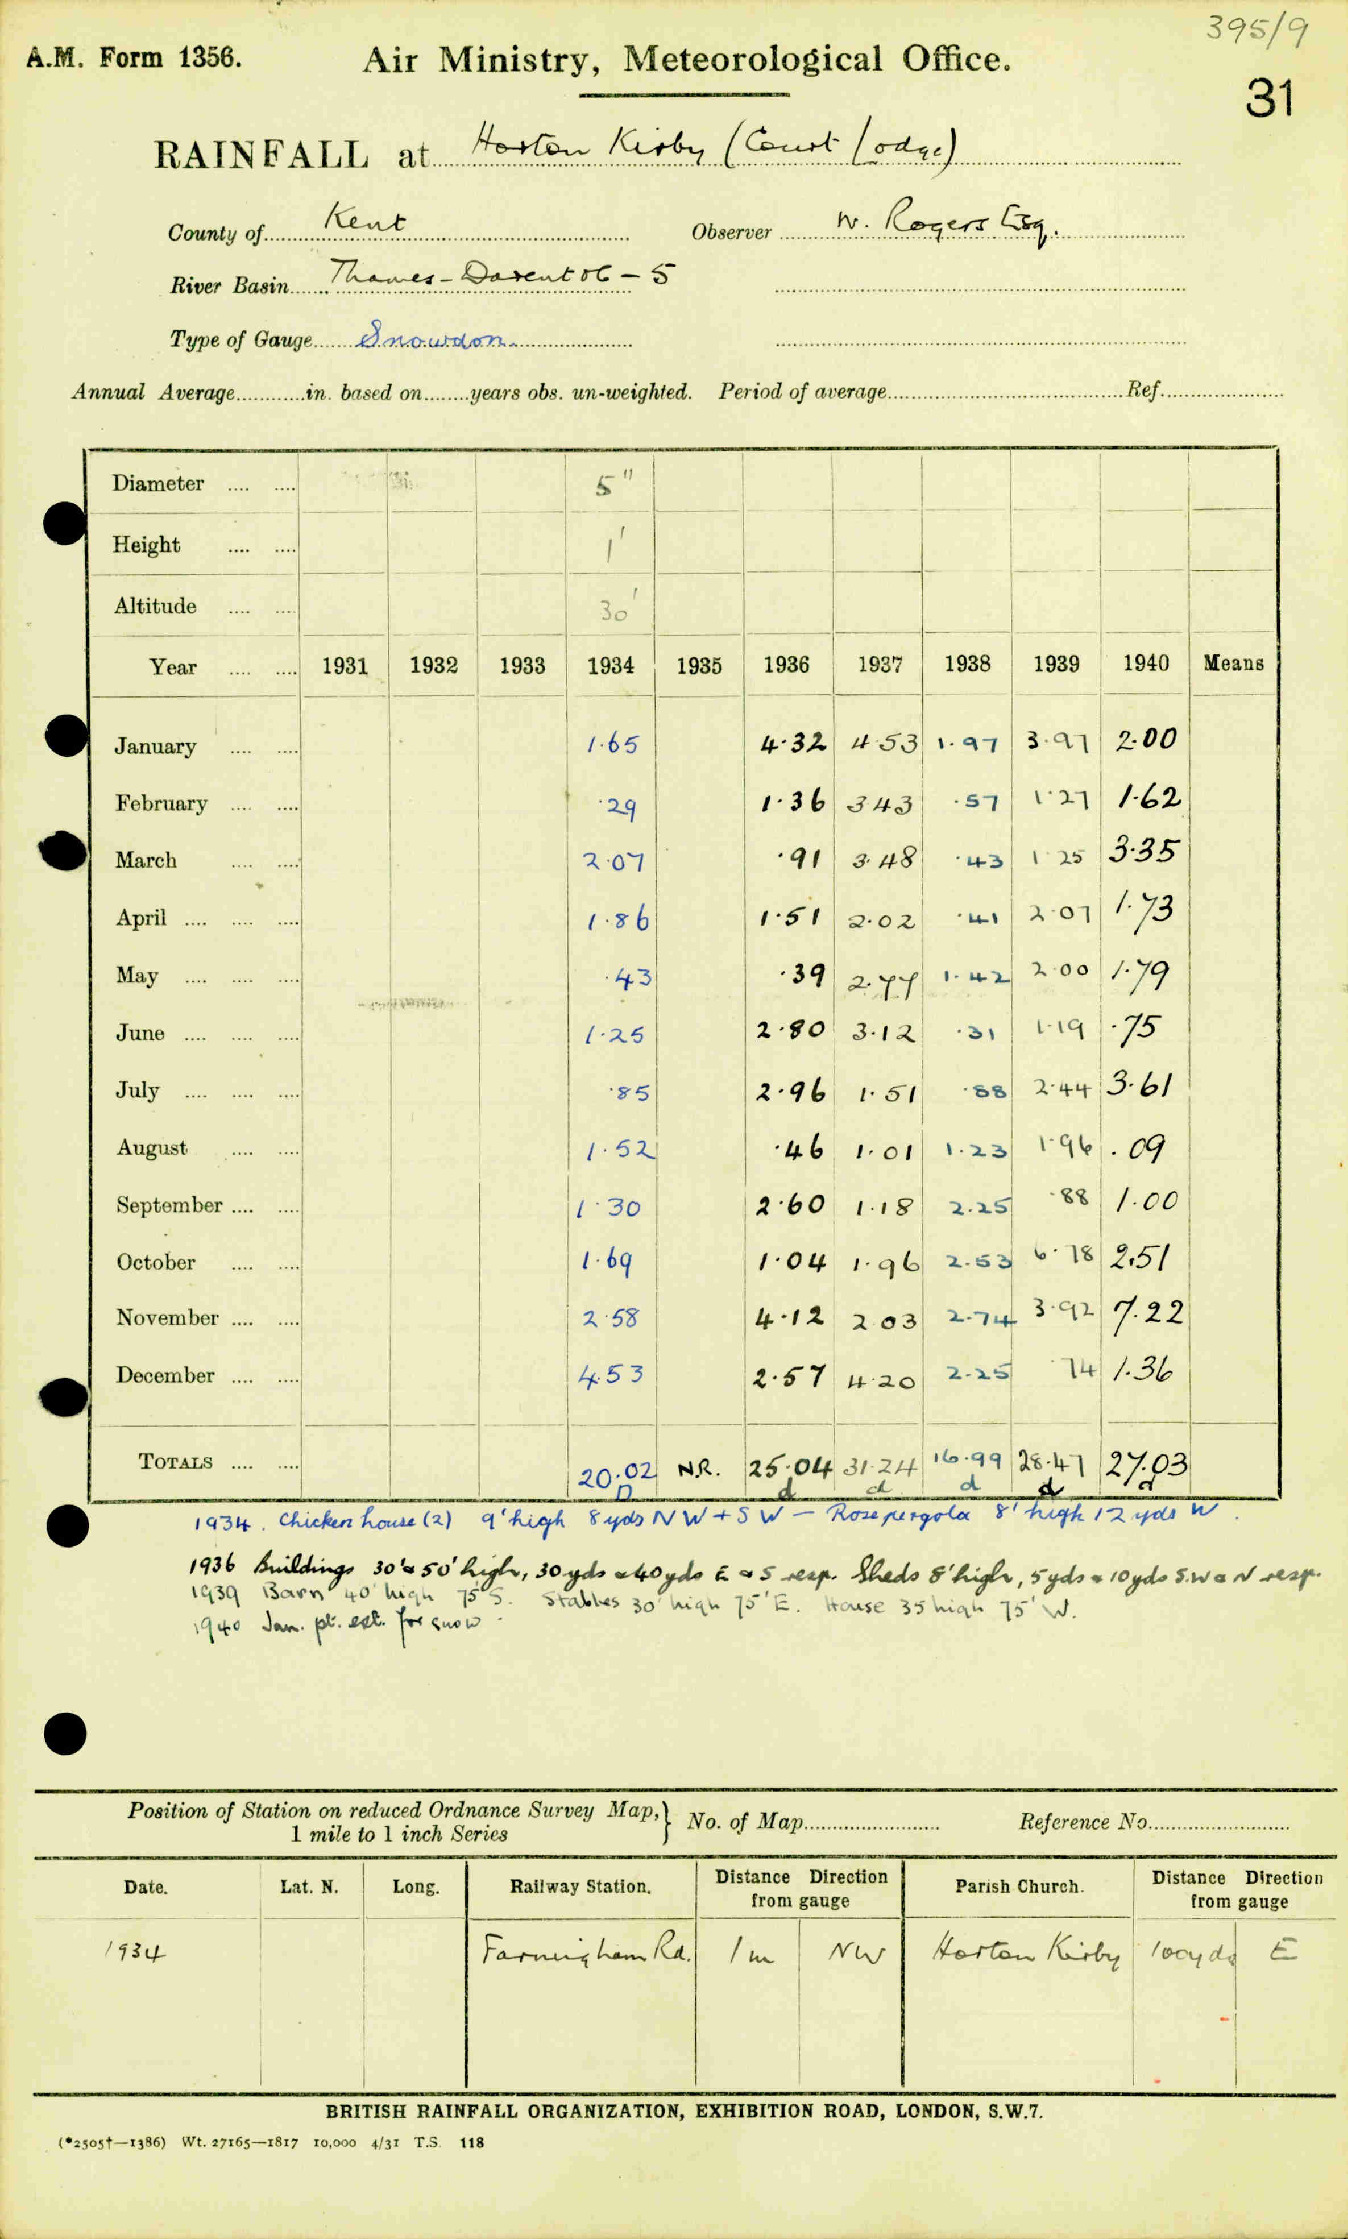 395/9
A.M. Form 1356. Air Ministry, Meteorological Office.
31
RAINFALL at Horton Kirby (Court Lodge)
County of Kent Observer W. Rogers Esq.
River Basin Thames - Darent 06 - 5
Type of Gauge Snowdon.
Annual Average in. based on years obs. un-weighted. Period of average Ref.
Diameter 5"
Height 1'
Altitude 30'
Year 1931 1932 1933 1934 1935 1936 1937 1938 1939 1940 Means
January 1.65 4.32 4.53 1.97 3.97 2.00
February .29 1.36 3.43 .57 1.27 1.62
March 2.07 .91 3.48 .43 1.25 3.35
April 1.86 1.51 2.02 .41 2.07 1.73
May .43 .39 2.77 1.42 2.00 1.79
June 1.25 2.80 3.12 .31 1.19 .75
July .85 2.96 1.51 .88 2.44 3.61
August 1.52 .46 1.01 1.23 1.96 .09
September 1.30 2.60 1.18 2.25 .88 1.00
October 1.69 1.04 1.96 2.53 6.78 2.51
November 2.58 4.12 2.03 2.74 3.92 7.22
December 4.53 2.57 4.20 2.25 .74 1.36
TOTALS 20.02 N.R. 25.04 31.24 16.99 28.47 27.03
D d d d d d
1934. Chicken house (2) 9' high 8 yds NW + SW - Rose pergola 8' high 12 yds W.
1936 Buildings 30' & 50' high, 30 yds & 40 yds E & S resp. Sheds 8' high, 5 yds & 10 yds S.W & N resp.
1939 Barn 40' high 75' S. Stables 30' high 75' E. House 35 high 75' W.
1940 Jan. pt. est. for snow.
Position of Station on reduced Ordnance Survey Map,} No. of Map Reference No.
1 mile to 1 inch Series
Date. Lat. N. Long. Railway Station. Distance Direction from gauge Parish Church. Distance Direction from gauge
1934 Farningham Rd. 1 m NW Horton Kirby 100 yds E
BRITISH RAINFALL ORGANIZATION, EXHIBITION ROAD, LONDON, S.W.7.
(*2505†—1386) Wt. 27165—1817 10,000 4/31 T.S. 118